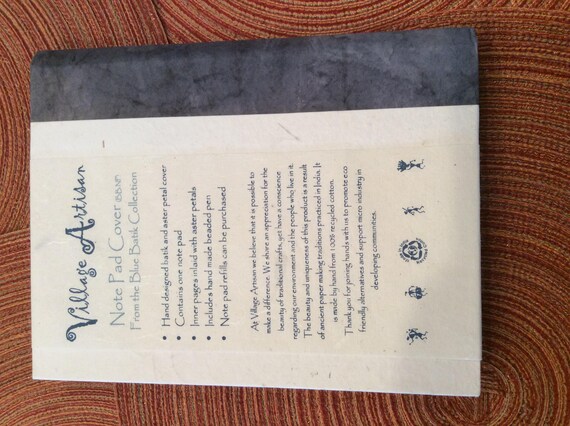 Village Artisan
Note Pad Cover
From the Blue Batik Collection
• Hand designed batik and aster petal cover
• Contains one note pad
• Inner pages inlaid with aster petals
• Includes hand made beaded pen
• Note pad refills can be purchased
At Village Artisan we believe that it is possible to
make a difference. We share an appreciation for the
beauty of traditional crafts, yet have a conscience
regarding our environment and the people who live in it.
The beauty and uniqueness of this product is a result
of ancient paper making traditions practiced in India. It
is made by hand from 100% recycled cotton.
Thank you for joining hands with us to promote eco
friendly alternatives and support micro industry in
developing communities.